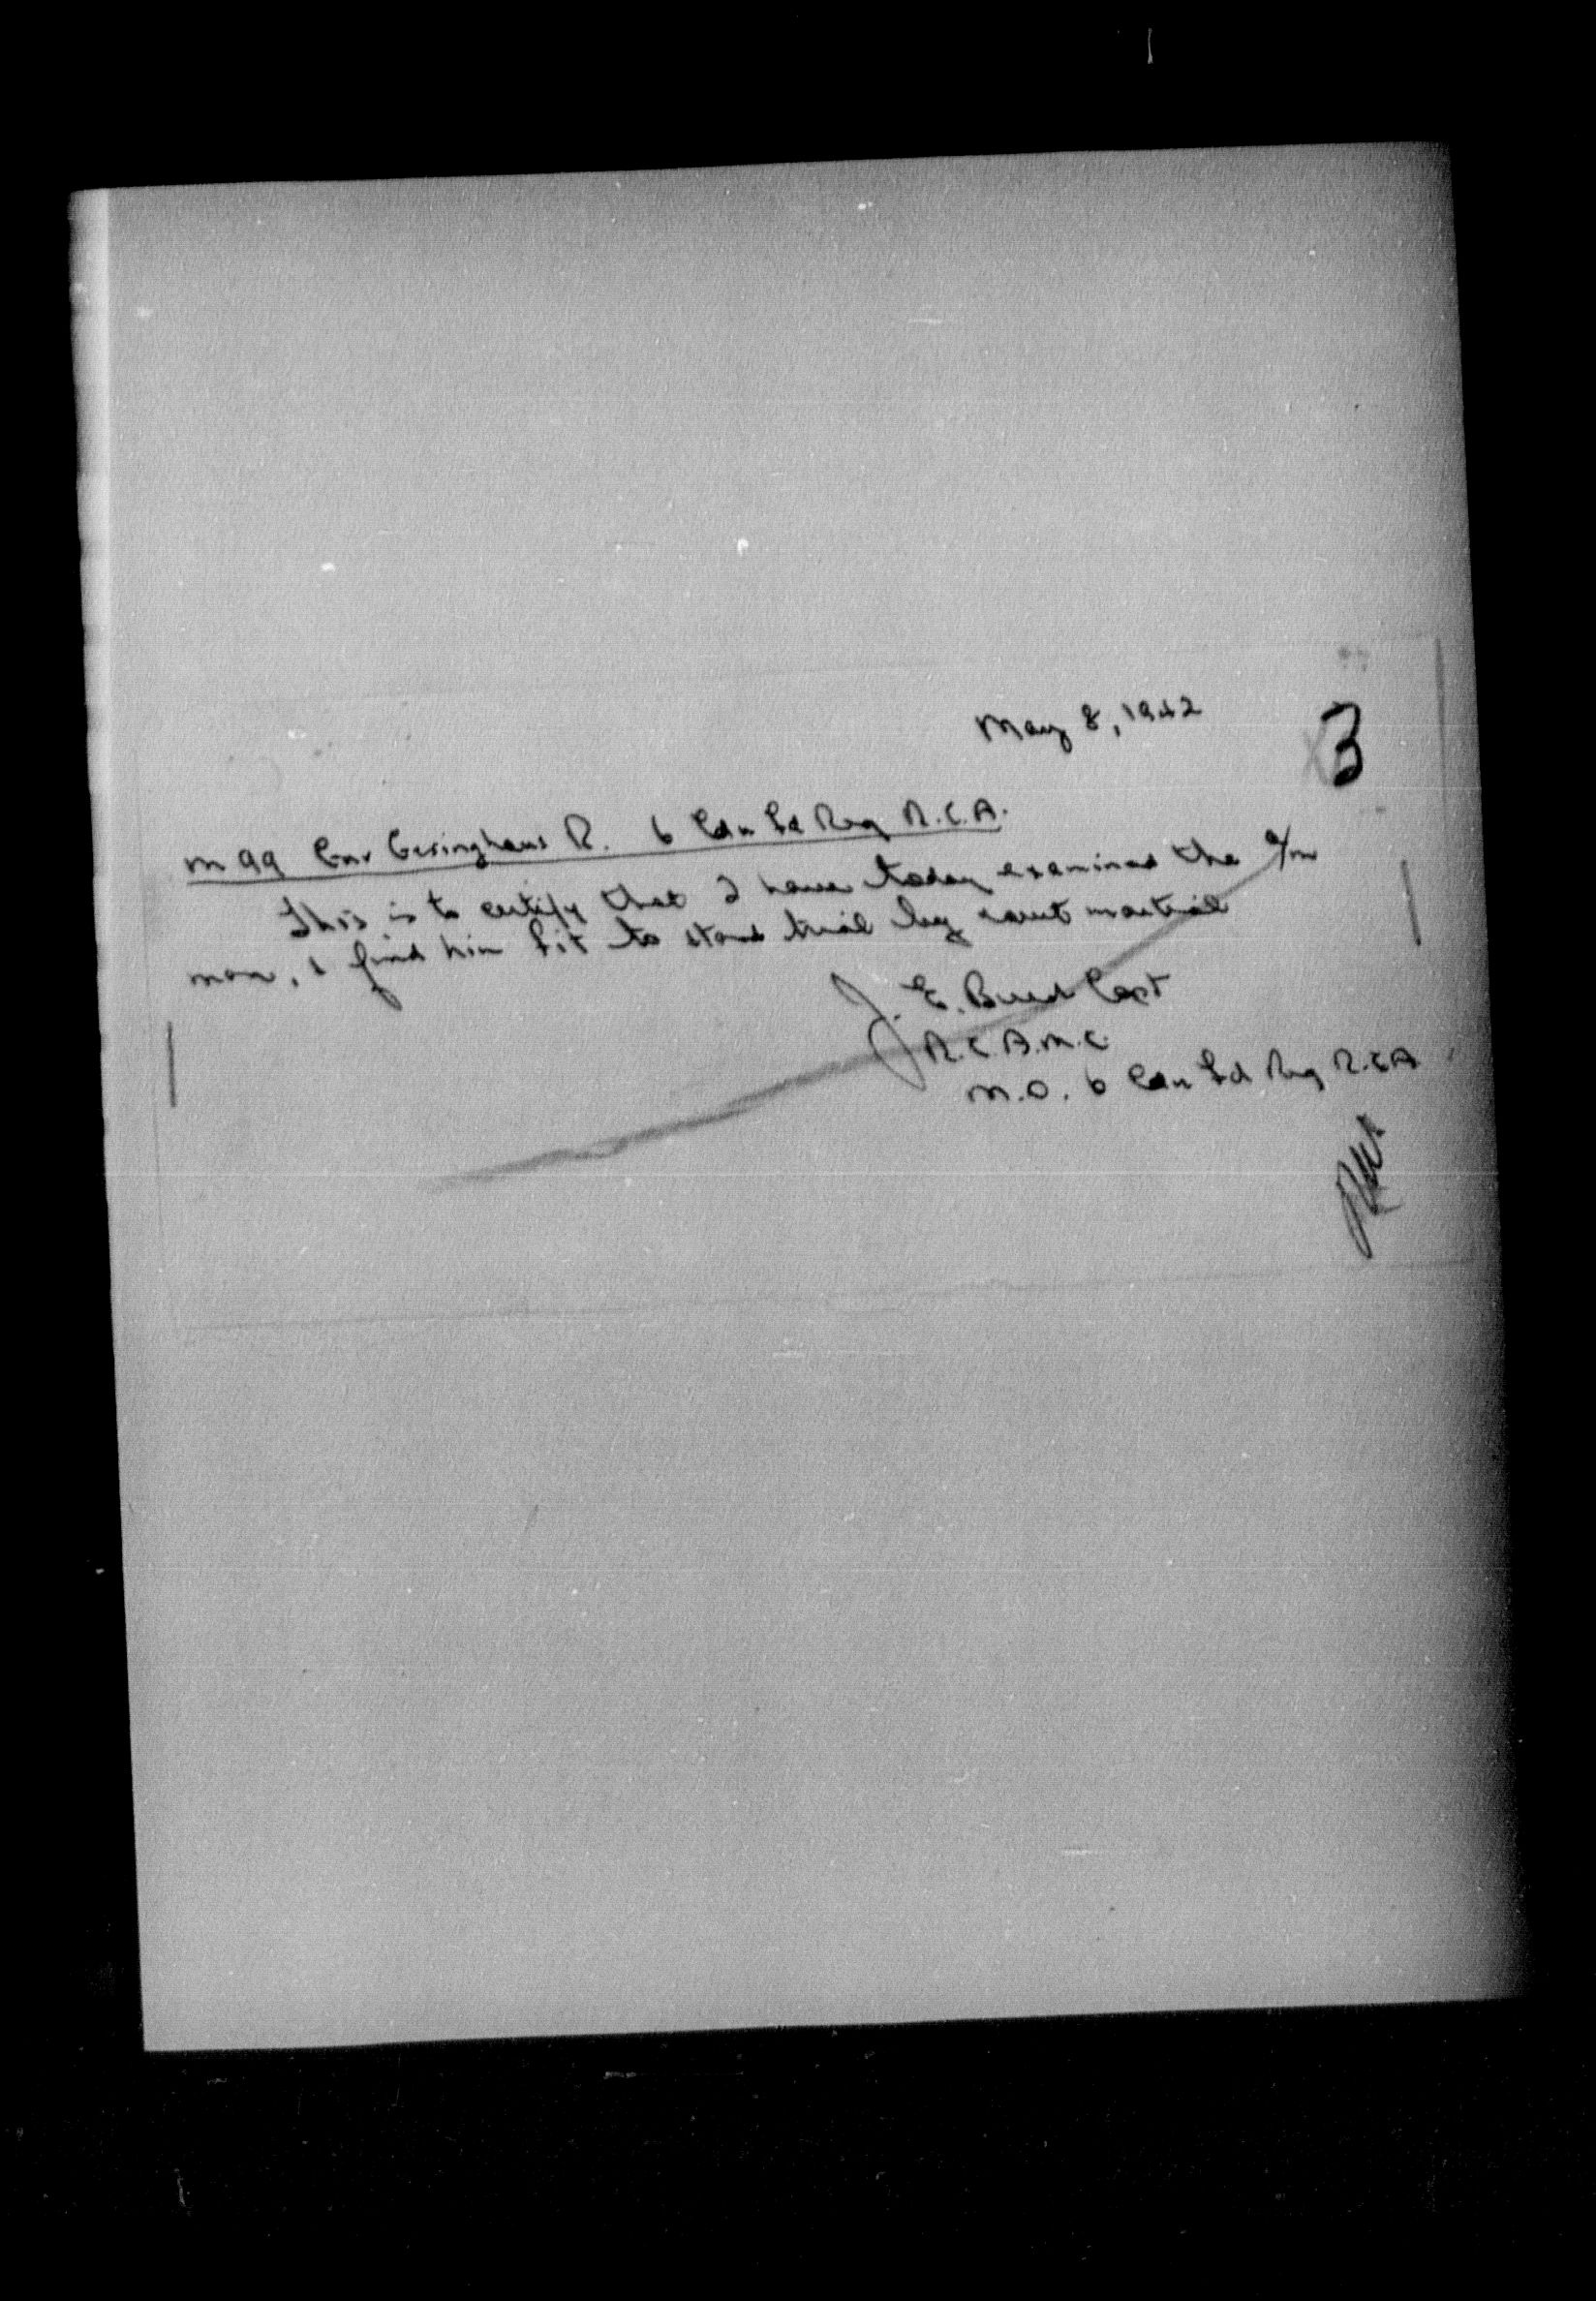 May 8, 1942
3
M 99 Gnr Geringhaus R. 6 Cdn Fd Reg R.C.A.
This is to certify that I have today examined the a/m
man, & find him fit to stand trial by court martial
J. E. Capt
R.C.A.M.C.
M.O. 6 Cdn Fd Reg R.C.A